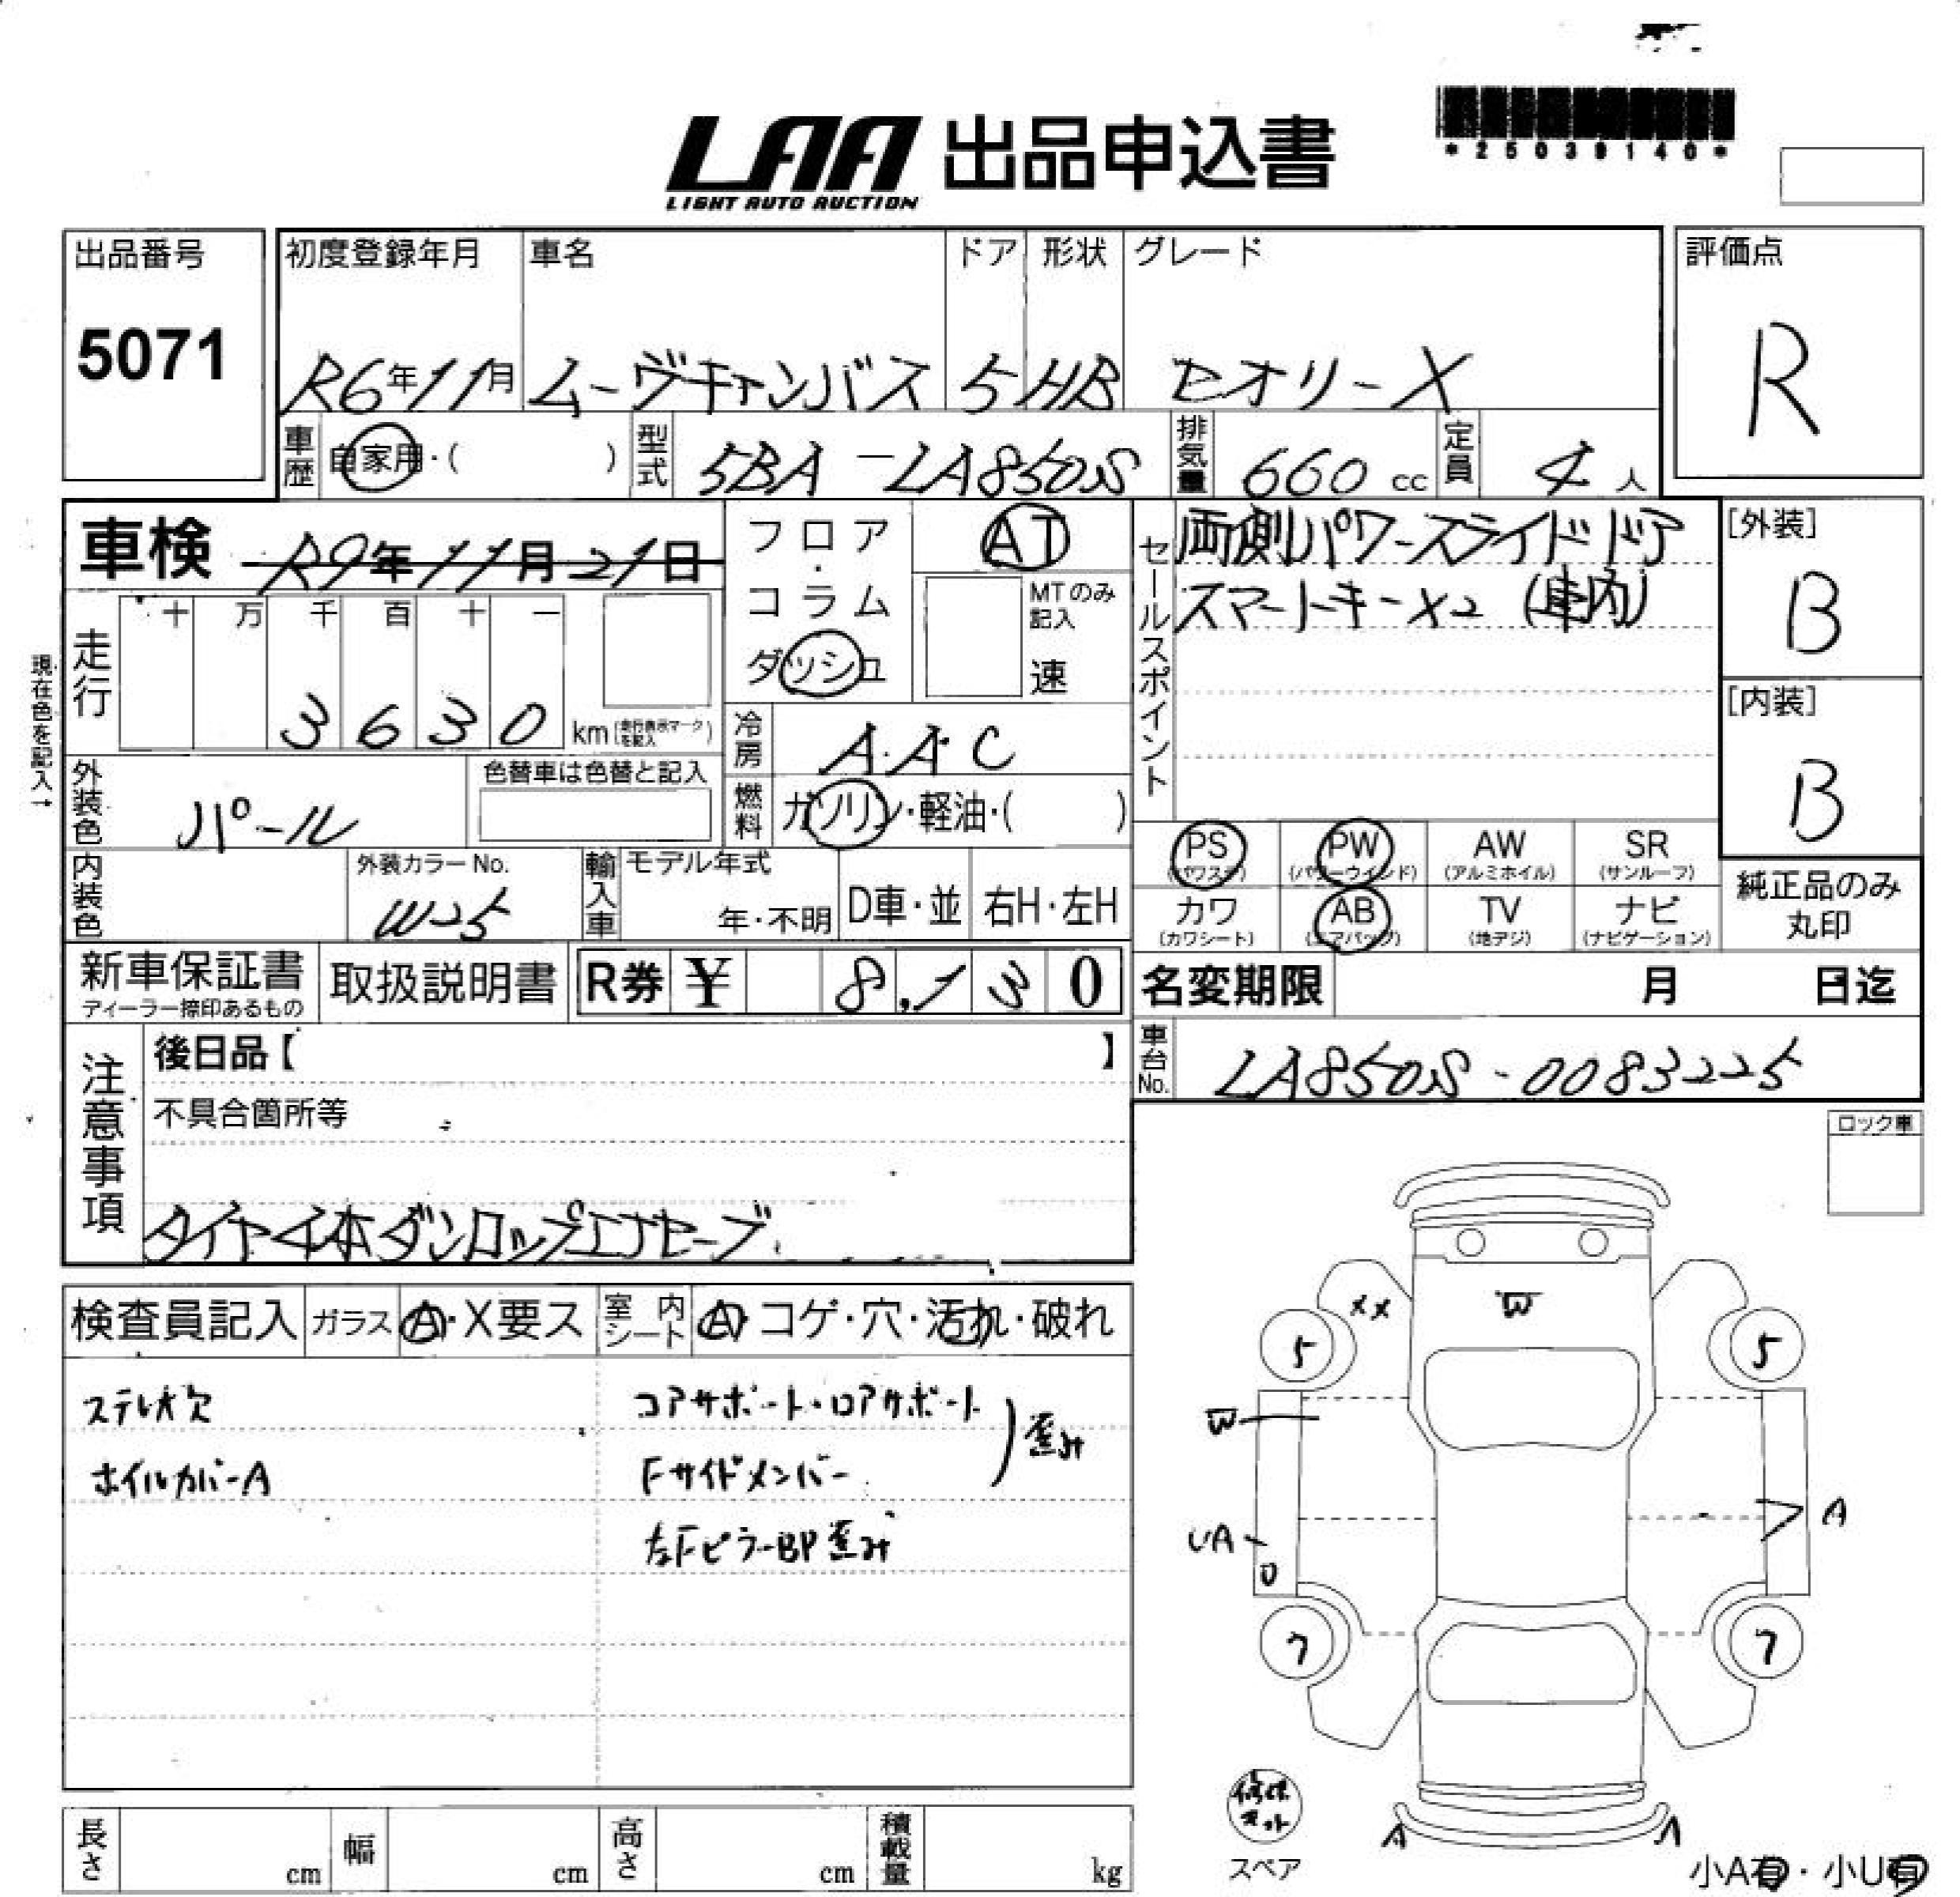 *25039140*
LAA 出品申込書
LIGHT AUTO AUCTION
出品番号
5071
初度登録年月 車名 ドア 形状 グレード
R6年11月 ムーヴキャンバス 5 HB セオリーX
評価点
R
車歴 自家用・( ) 型式 5BA-LA850S 排気量 660cc 定員 4人
車検 R9年11月21日
フロア・コラム ダッシュ
AT
MTのみ記入
速
セールスポイント
両側パワースライドドア
スマートキーX2 (車内)
[外装]
B
[内装]
B
現在色を記入→
走行 十 万 千 百 十 一
3 6 3 0 km (走行表示マークを記入)
冷房 A.A.C
外装色 パール
色替車は色替と記入
燃料 ガソリン・軽油・( )
内装色 外装カラーNo.
W25
輸入車 モデル年式
年・不明 D車・並 右H・左H
PS (パワステ) PW (パワーウインド) AW (アルミホイル) SR (サンルーフ)
カワ (カワシート) AB (エアバッグ) TV (地デジ) ナビ (ナビゲーション)
純正品のみ
丸印
新車保証書
ディーラー捺印あるもの
取扱説明書
R券 ¥ 8,130
名変期限 月 日迄
車台No. LA850S-0083225
注意事項
後日品【 】
不具合箇所等
タイヤ4本ダンロップエナセーブ
ロック車
検査員記入 ガラス A・X要ス 室内シート A・コゲ・穴・汚れ・破れ
ステレオ欠
ホイルカバーA
コアサポート・ロアサポート
Fサイドメンバー
歪み
左FピラーBP歪み
XX W
5 5
W
A
UA
U
7 7
修理キット
スペア
A A
小A有・小U有
長さ cm 幅 cm 高さ cm 積載量 kg